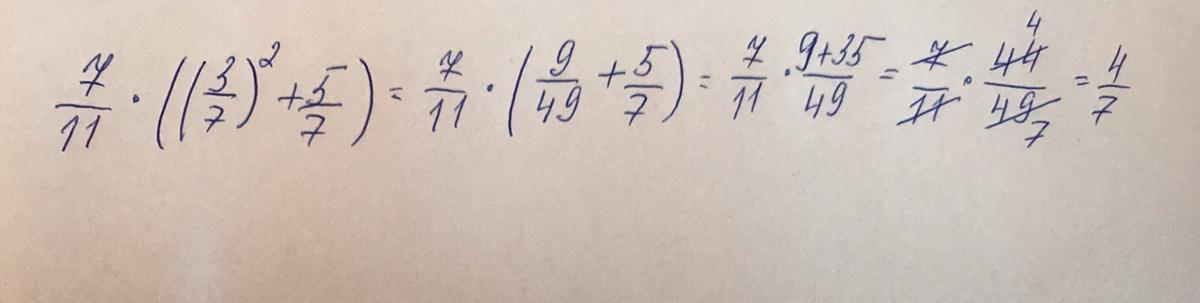 7/11 · ((3/7)² + 5/7) = 7/11 · (9/49 + 5/7) = 7/11 · (9+35)/49 = 7/11 · 44/49 = 4/7
4
7